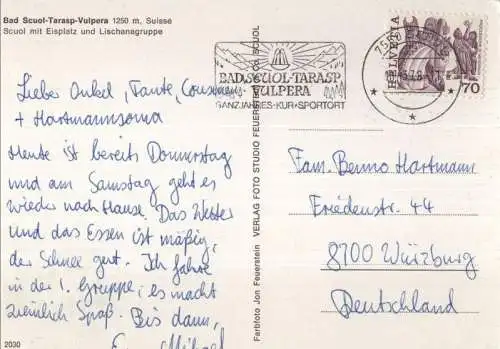 Bad Scuol-Tarasp-Vulpera 1250 m, Suisse
Scuol mit Eisplatz und Lischanagruppe
Lieber Onkel, Tante, Cousinen
+ Hartmannsoma
Heute ist bereits Donnerstag
und am Samstag geht es
wieder nach Hause. Das Wetter
und das Essen ist mäßig,
der Schnee gut. Ich fahre
in der 1. Gruppe, es macht
ziemlich Spaß. Bis dann,
Michael
2030
Farbfoto Jon Feuerstein VERLAG FOTO STUDIO FEUERSTEIN SCUOL
BAD SCUOL-TARASP
VULPERA
GANZJAHRES-KUR+SPORTORT
HELVETIA
70
Fam. Benno Hartmann
Friedenstr. 44
8700 Würzburg
Deutschland